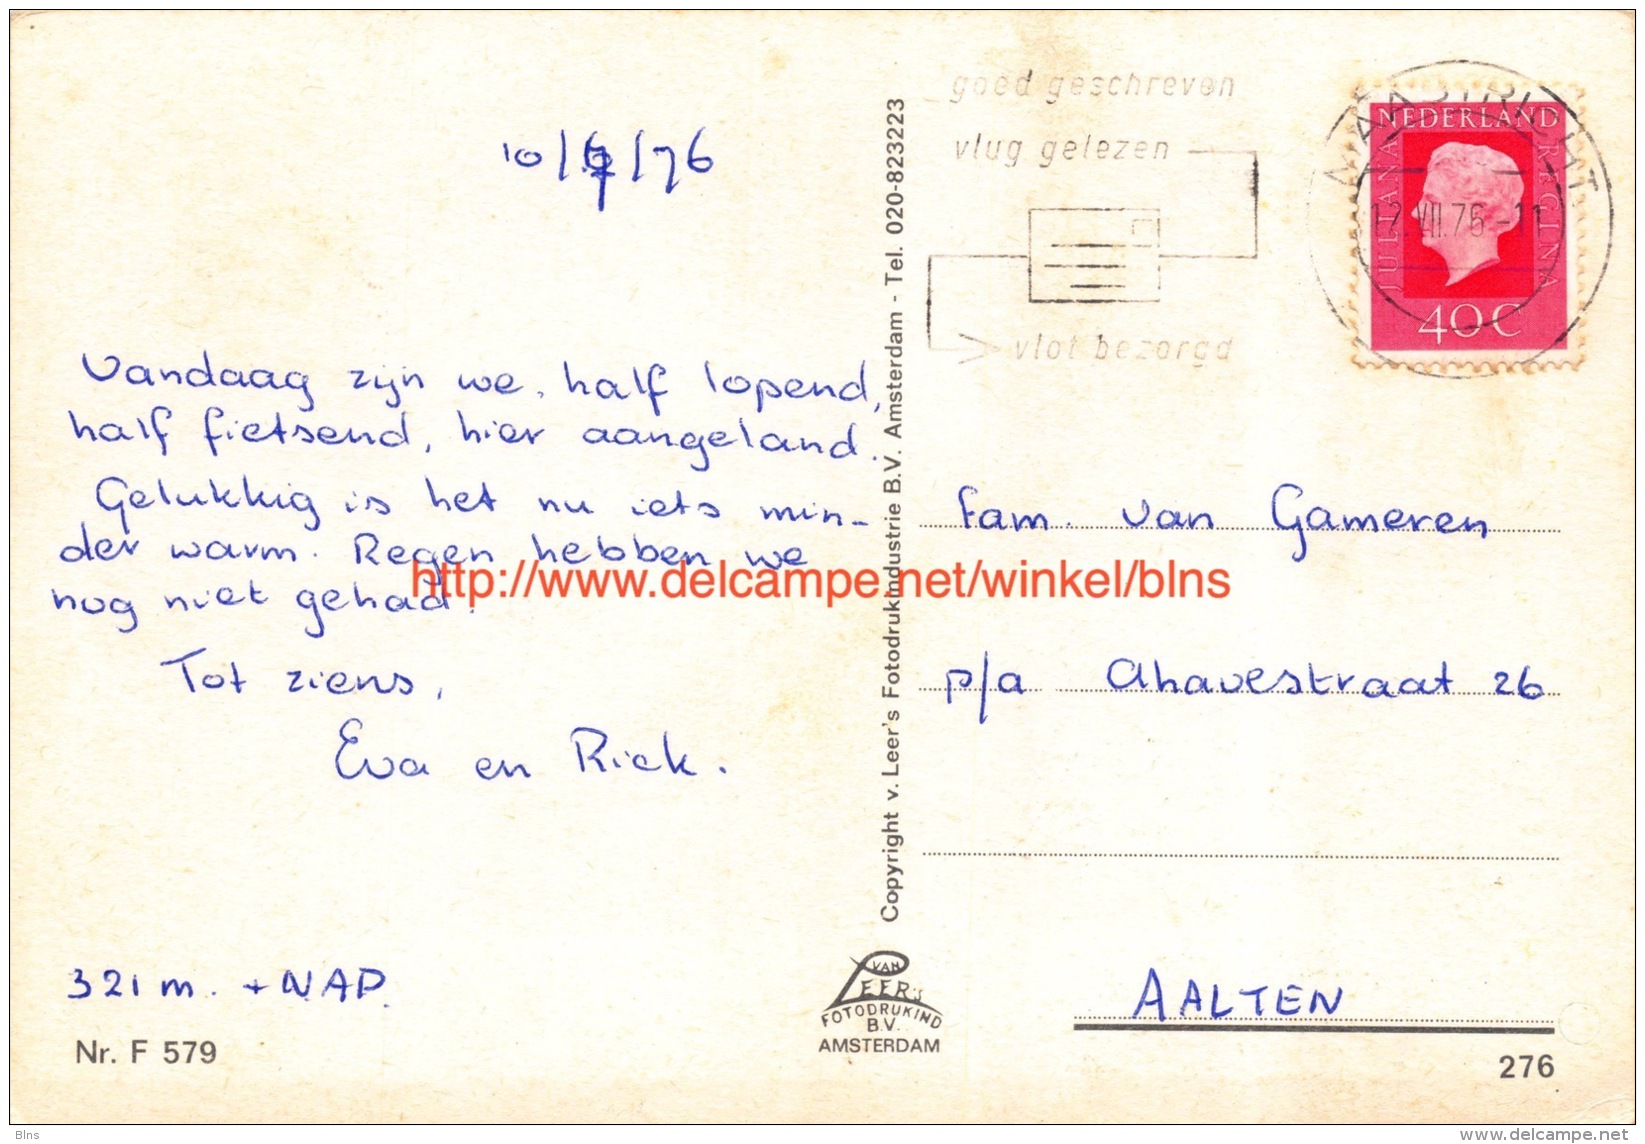 goed geschreven
vlug gelezen
vlot bezorgd
MAASTRICHT
12.VII.76-11
NEDERLAND
JULIANA REGINA
40C
10/7/76
Vandaag zijn we, half lopend,
half fietsend, hier aangeland.
Gelukkig is het nu iets min-
der warm. Regen hebben we
nog niet gehad.
Tot ziens,
Eva en Rick.
321 m. + NAP.
Nr. F 579
Copyright v. Leer's Fotodrukindustrie B.V. Amsterdam - Tel. 020-823223
VAN
LEER'S
FOTODRUKIND
B.V.
AMSTERDAM
fam. van Gameren
p/a Ahavestraat 26
AALTEN
276
http://www.delcampe.net/winkel/blns
Blns
www.delcampe.net